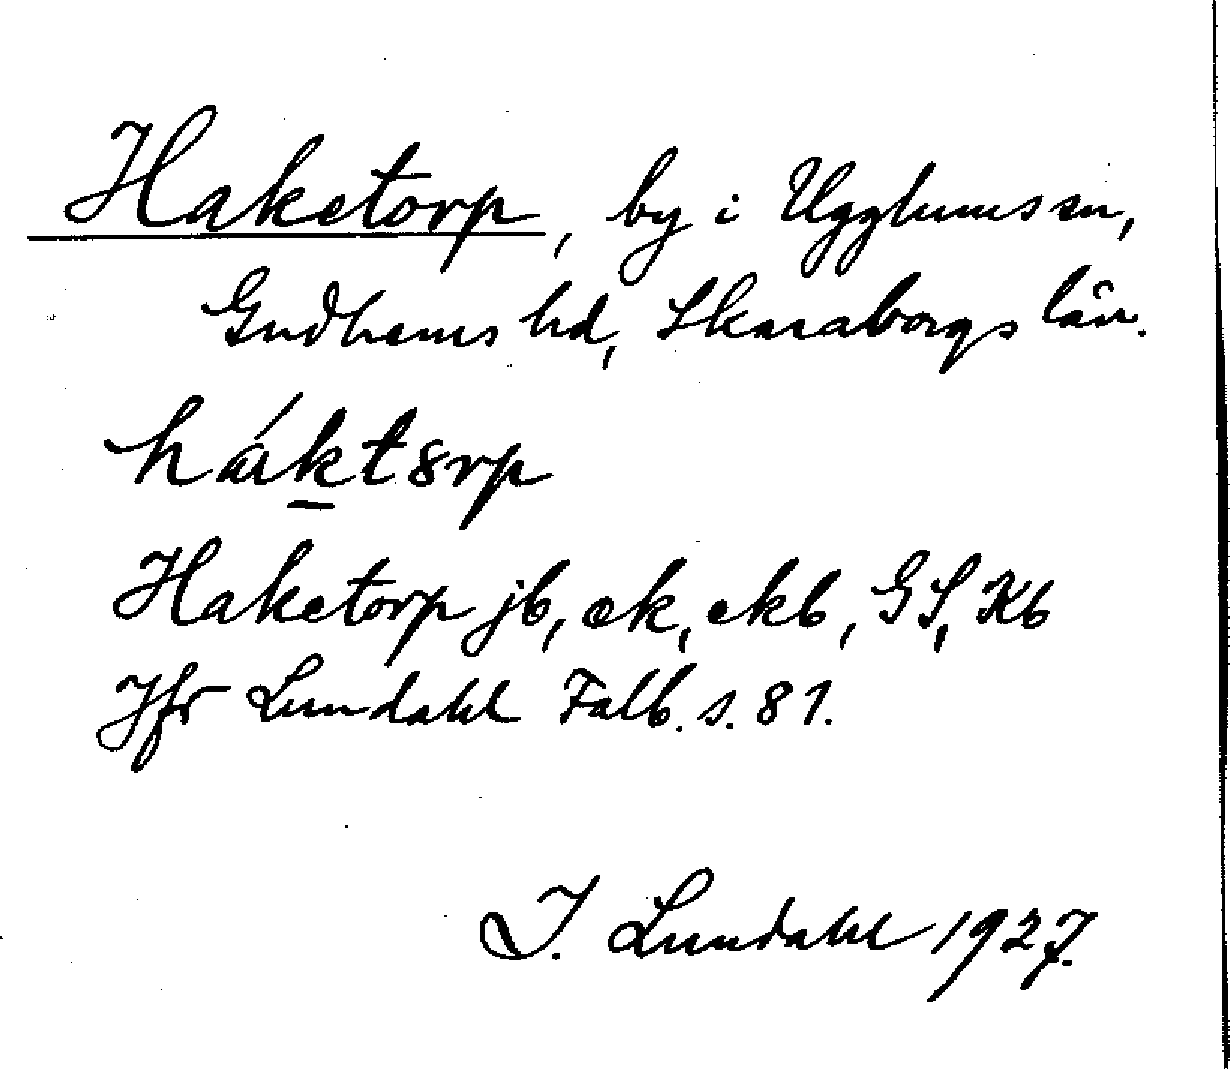 Haketorp, by i Ugglums sn,
Gudhems hd, Skaraborgs län.
háktorp
Haketorp jb, ek, ekb, GS, Kb
Jfr Lundahl Falb. s. 81.
I. Lundahl 1927.